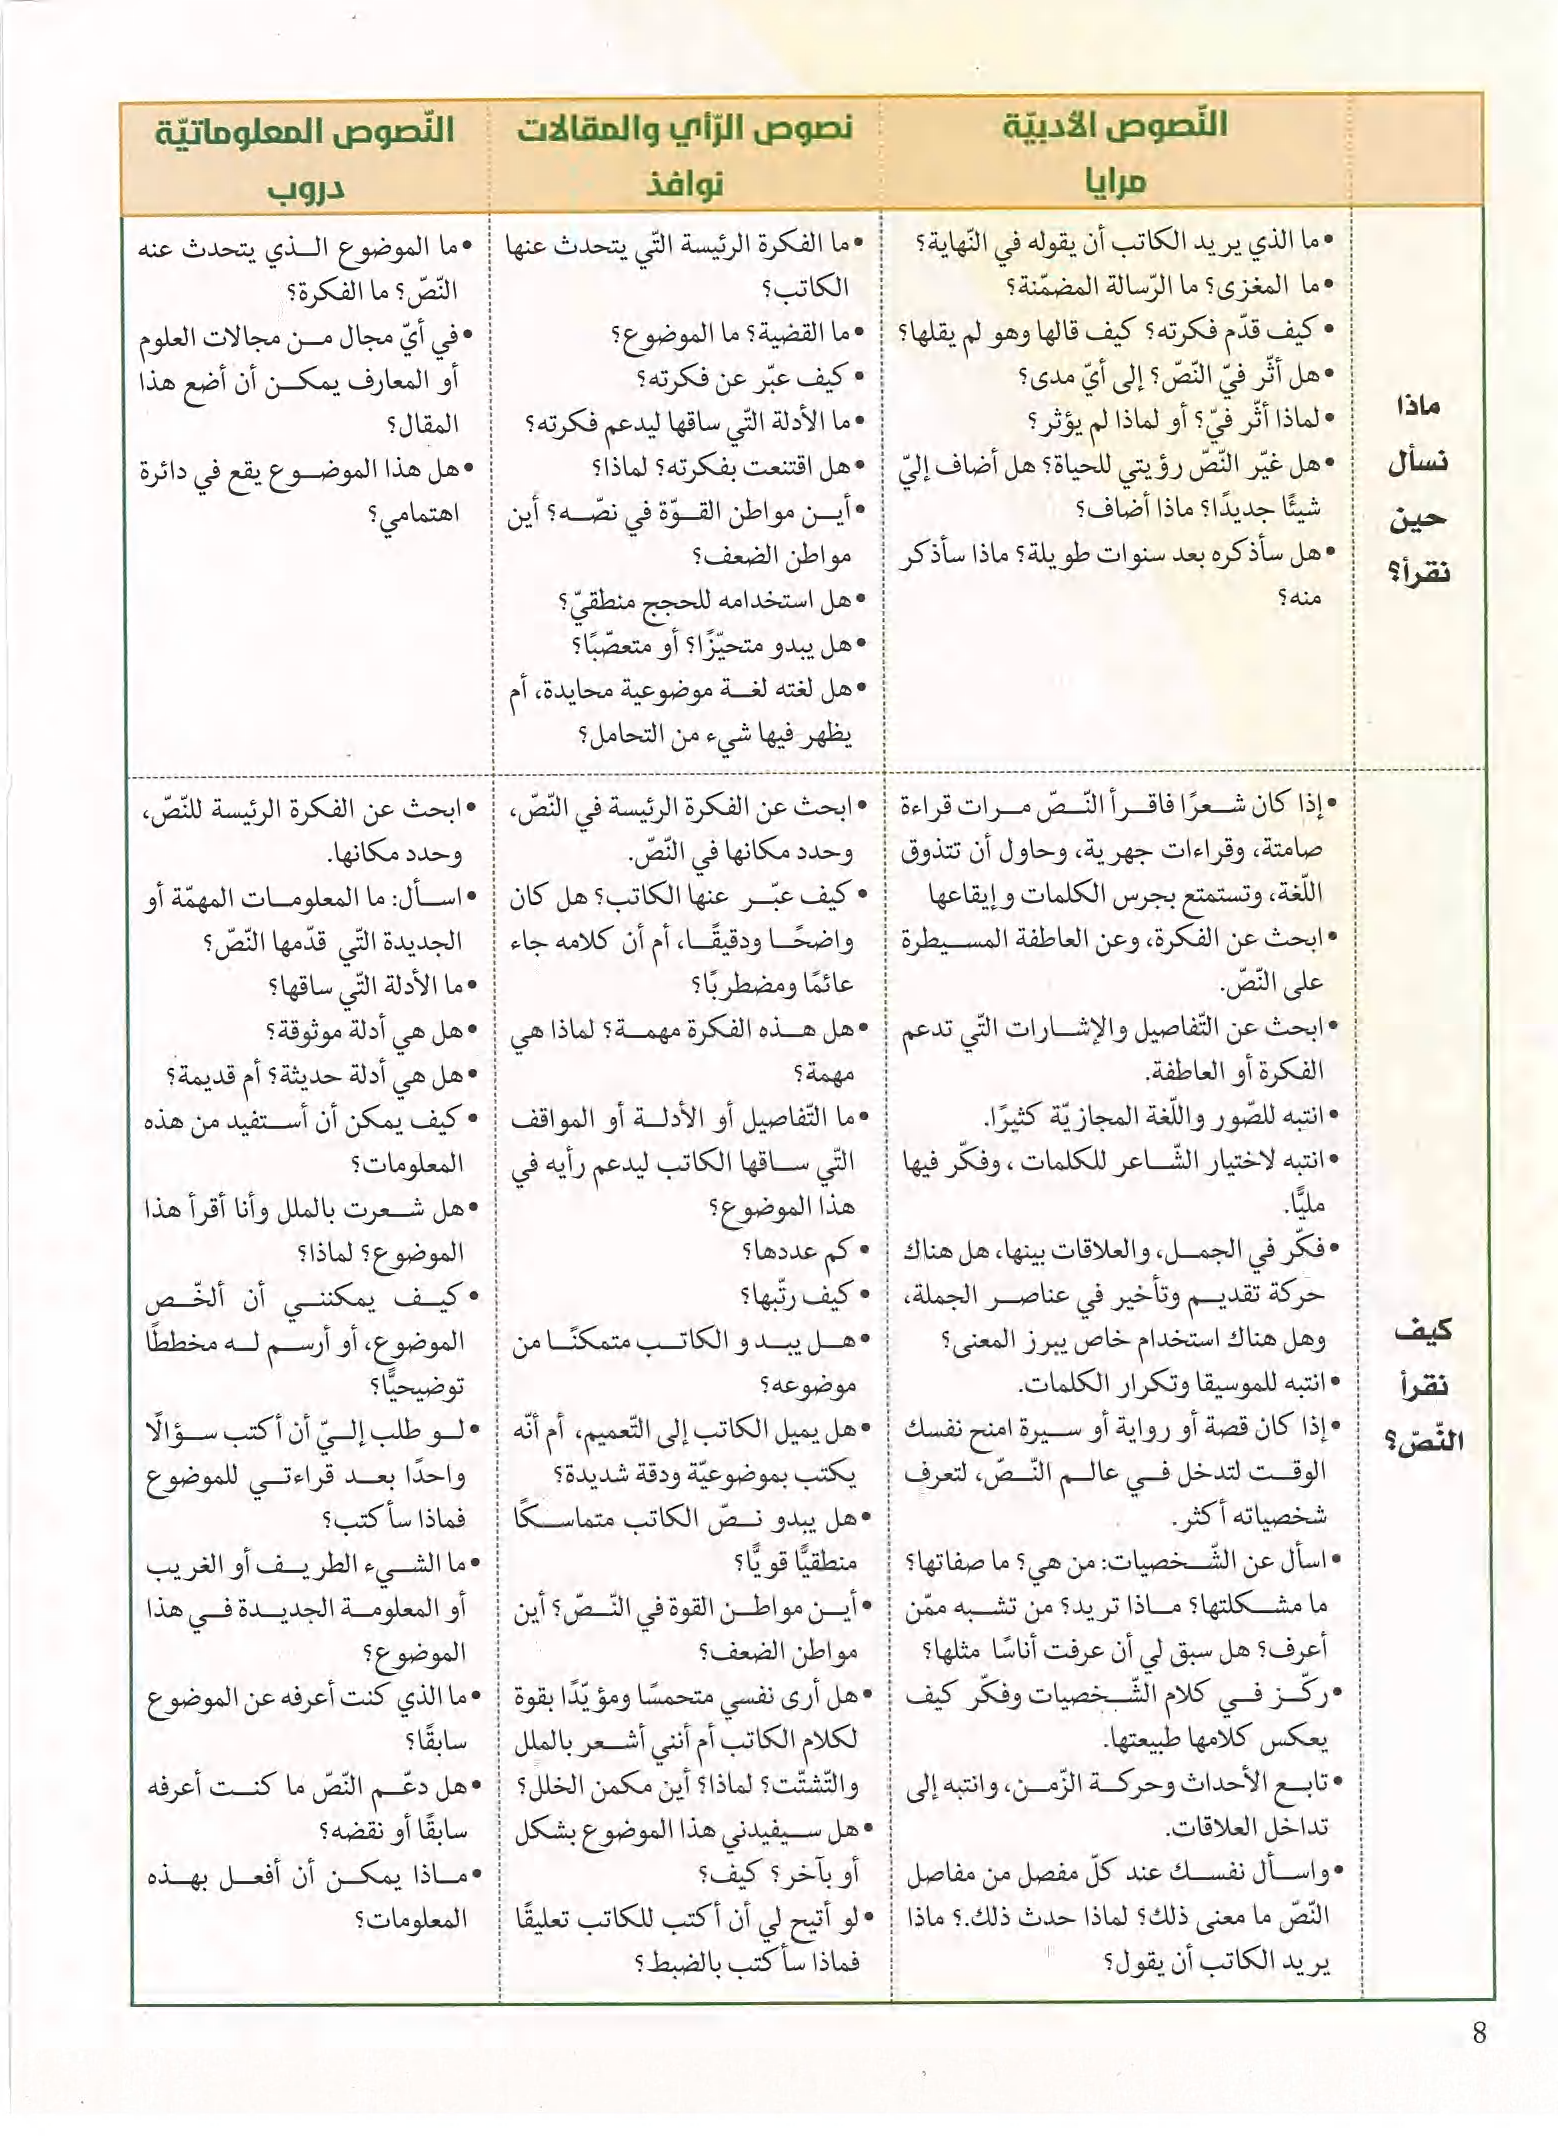 النّصوص الأدبيّة
مرايا
نصوص الرّأي والمقالات
نوافذ
النّصوص المعلوماتيّة
دروب
ماذا
نسأل
حين
نقرأ؟
•ما الذي يريد الكاتب أن يقوله في النّهاية؟
•ما المغزى؟ ما الرّسالة المضمّنة؟
• كيف قدّم فكرته؟ كيف قالها وهو لم يقلها؟
•هل أثّر فيّ النّصّ؟ إلى أيّ مدى؟
•لماذا أثّر فيّ؟ أو لماذا لم يؤثر؟
•هل غيّر النّصّ رؤيتي للحياة؟ هل أضاف إليّ
شيئًا جديدًا؟ ماذا أضاف؟
•هل سأذكره بعد سنوات طويلة؟ ماذا سأذكر
منه؟
•ما الفكرة الرئيسة التّي يتحدث عنها
الكاتب؟
•ما القضية؟ ما الموضوع؟
• كيف عبّر عن فكرته؟
•ما الأدلة التّي ساقها ليدعم فكرته؟
•هل اقتنعت بفكرته؟ لماذا؟
•أين مواطن القوّة في نصّه؟ أين
مواطن الضعف؟
•هل استخدامه للحجج منطقيّ؟
•هل يبدو متحيّزًا؟ أو متعصّبًا؟
•هل لغته لغة موضوعية محايدة، أم
يظهر فيها شيء من التحامل؟
•ما الموضوع الذي يتحدث عنه
النّصّ؟ ما الفكرة؟
•في أيّ مجال من مجالات العلوم
أو المعارف يمكن أن أضع هذا
المقال؟
•هل هذا الموضوع يقع في دائرة
اهتمامي؟
كيف
نقرأ
النّصّ؟
•إذا كان شعرًا فاقرأ النّصّ مرات قراءة
صامتة، وقراءات جهرية، وحاول أن تتذوق
اللّغة، وتستمتع بجرس الكلمات وإيقاعها
•ابحث عن الفكرة، وعن العاطفة المسيطرة
على النّصّ.
•ابحث عن التّفاصيل والإشارات التّي تدعم
الفكرة أو العاطفة.
•انتبه للصّور واللّغة المجازيّة كثيرًا.
•انتبه لاختيار الشّاعر للكلمات ، وفكّر فيها
مليًّا.
•فكّر في الجمل، والعلاقات بينها، هل هناك
حركة تقديم وتأخير في عناصر الجملة،
وهل هناك استخدام خاص يبرز المعنى؟
•انتبه للموسيقا وتكرار الكلمات.
•إذا كان قصة أو رواية أو سيرة امنح نفسك
الوقت لتدخل في عالم النّصّ، لتعرف
شخصياته أكثر.
•اسأل عن الشّخصيات: من هي؟ ما صفاتها؟
ما مشكلتها؟ ماذا تريد؟ من تشبه ممّن
أعرف؟ هل سبق لي أن عرفت أناسًا مثلها؟
•ركّز في كلام الشّخصيات وفكّر كيف
يعكس كلامها طبيعتها.
•تابع الأحداث وحركة الزّمن، وانتبه إلى
تداخل العلاقات.
•واسأل نفسك عند كلّ مفصل من مفاصل
النّصّ ما معنى ذلك؟ لماذا حدث ذلك.؟ ماذا
يريد الكاتب أن يقول؟
•ابحث عن الفكرة الرئيسة في النّصّ،
وحدد مكانها في النّصّ.
• كيف عبّر عنها الكاتب؟ هل كان
واضحًا ودقيقًا، أم أن كلامه جاء
عائمًا ومضطربًا؟
•هل هذه الفكرة مهمة؟ لماذا هي
مهمة؟
•ما التّفاصيل أو الأدلة أو المواقف
التّي ساقها الكاتب ليدعم رأيه في
هذا الموضوع؟
• كم عددها؟
• كيف رتّبها؟
•هل يبدو الكاتب متمكنًا من
موضوعه؟
•هل يميل الكاتب إلى التّعميم، أم أنّه
يكتب بموضوعيّة ودقة شديدة؟
•هل يبدو نصّ الكاتب متماسكًا
منطقيًّا قويًّا؟
•أين مواطن القوة في النّصّ؟ أين
مواطن الضعف؟
•هل أرى نفسي متحمسًا ومؤيّدًا بقوة
لكلام الكاتب أم أنني أشعر بالملل
والتّشتّت؟ لماذا؟ أين مكمن الخلل؟
•هل سيفيدني هذا الموضوع بشكل
أو بآخر؟ كيف؟
•لو أتيح لي أن أكتب للكاتب تعليقًا
فماذا سأكتب بالضبط؟
•ابحث عن الفكرة الرئيسة للنّصّ،
وحدد مكانها.
•اسأل: ما المعلومات المهمّة أو
الجديدة التّي قدّمها النّصّ؟
•ما الأدلة التّي ساقها؟
•هل هي أدلة موثوقة؟
•هل هي أدلة حديثة؟ أم قديمة؟
• كيف يمكن أن أستفيد من هذه
المعلومات؟
•هل شعرت بالملل وأنا أقرأ هذا
الموضوع؟ لماذا؟
• كيف يمكنني أن ألخّص
الموضوع، أو أرسم له مخططًا
توضيحيًّا؟
•لو طلب إليّ أن أكتب سؤالًا
واحدًا بعد قراءتي للموضوع
فماذا سأكتب؟
•ما الشيء الطريف أو الغريب
أو المعلومة الجديدة في هذا
الموضوع؟
•ما الذي كنت أعرفه عن الموضوع
سابقًا؟
•هل دعّم النّصّ ما كنت أعرفه
سابقًا أو نقضه؟
•ماذا يمكن أن أفعل بهذه
المعلومات؟
8